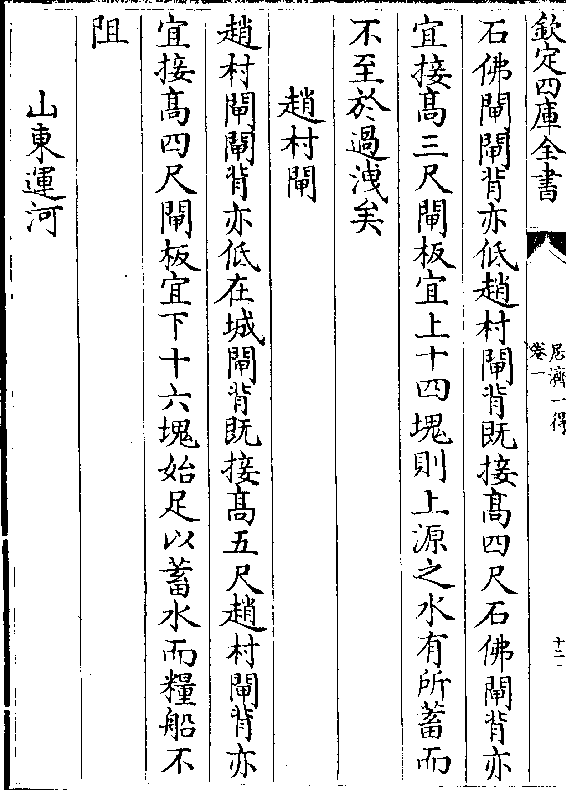 欽定四庫全書
居濟一得
卷一
十二
石佛閘閘背亦低趙村閘背既接髙四尺石佛閘背亦
宜接髙三尺閘板宜上十四塊則上源之水有所蓄而
不至於過洩矣
趙村閘
趙村閘閘背亦低在城閘背既接髙五尺趙村閘背亦
宜接髙四尺閘板宜下十六塊始足以蓄水而糧船不
阻
山東運河